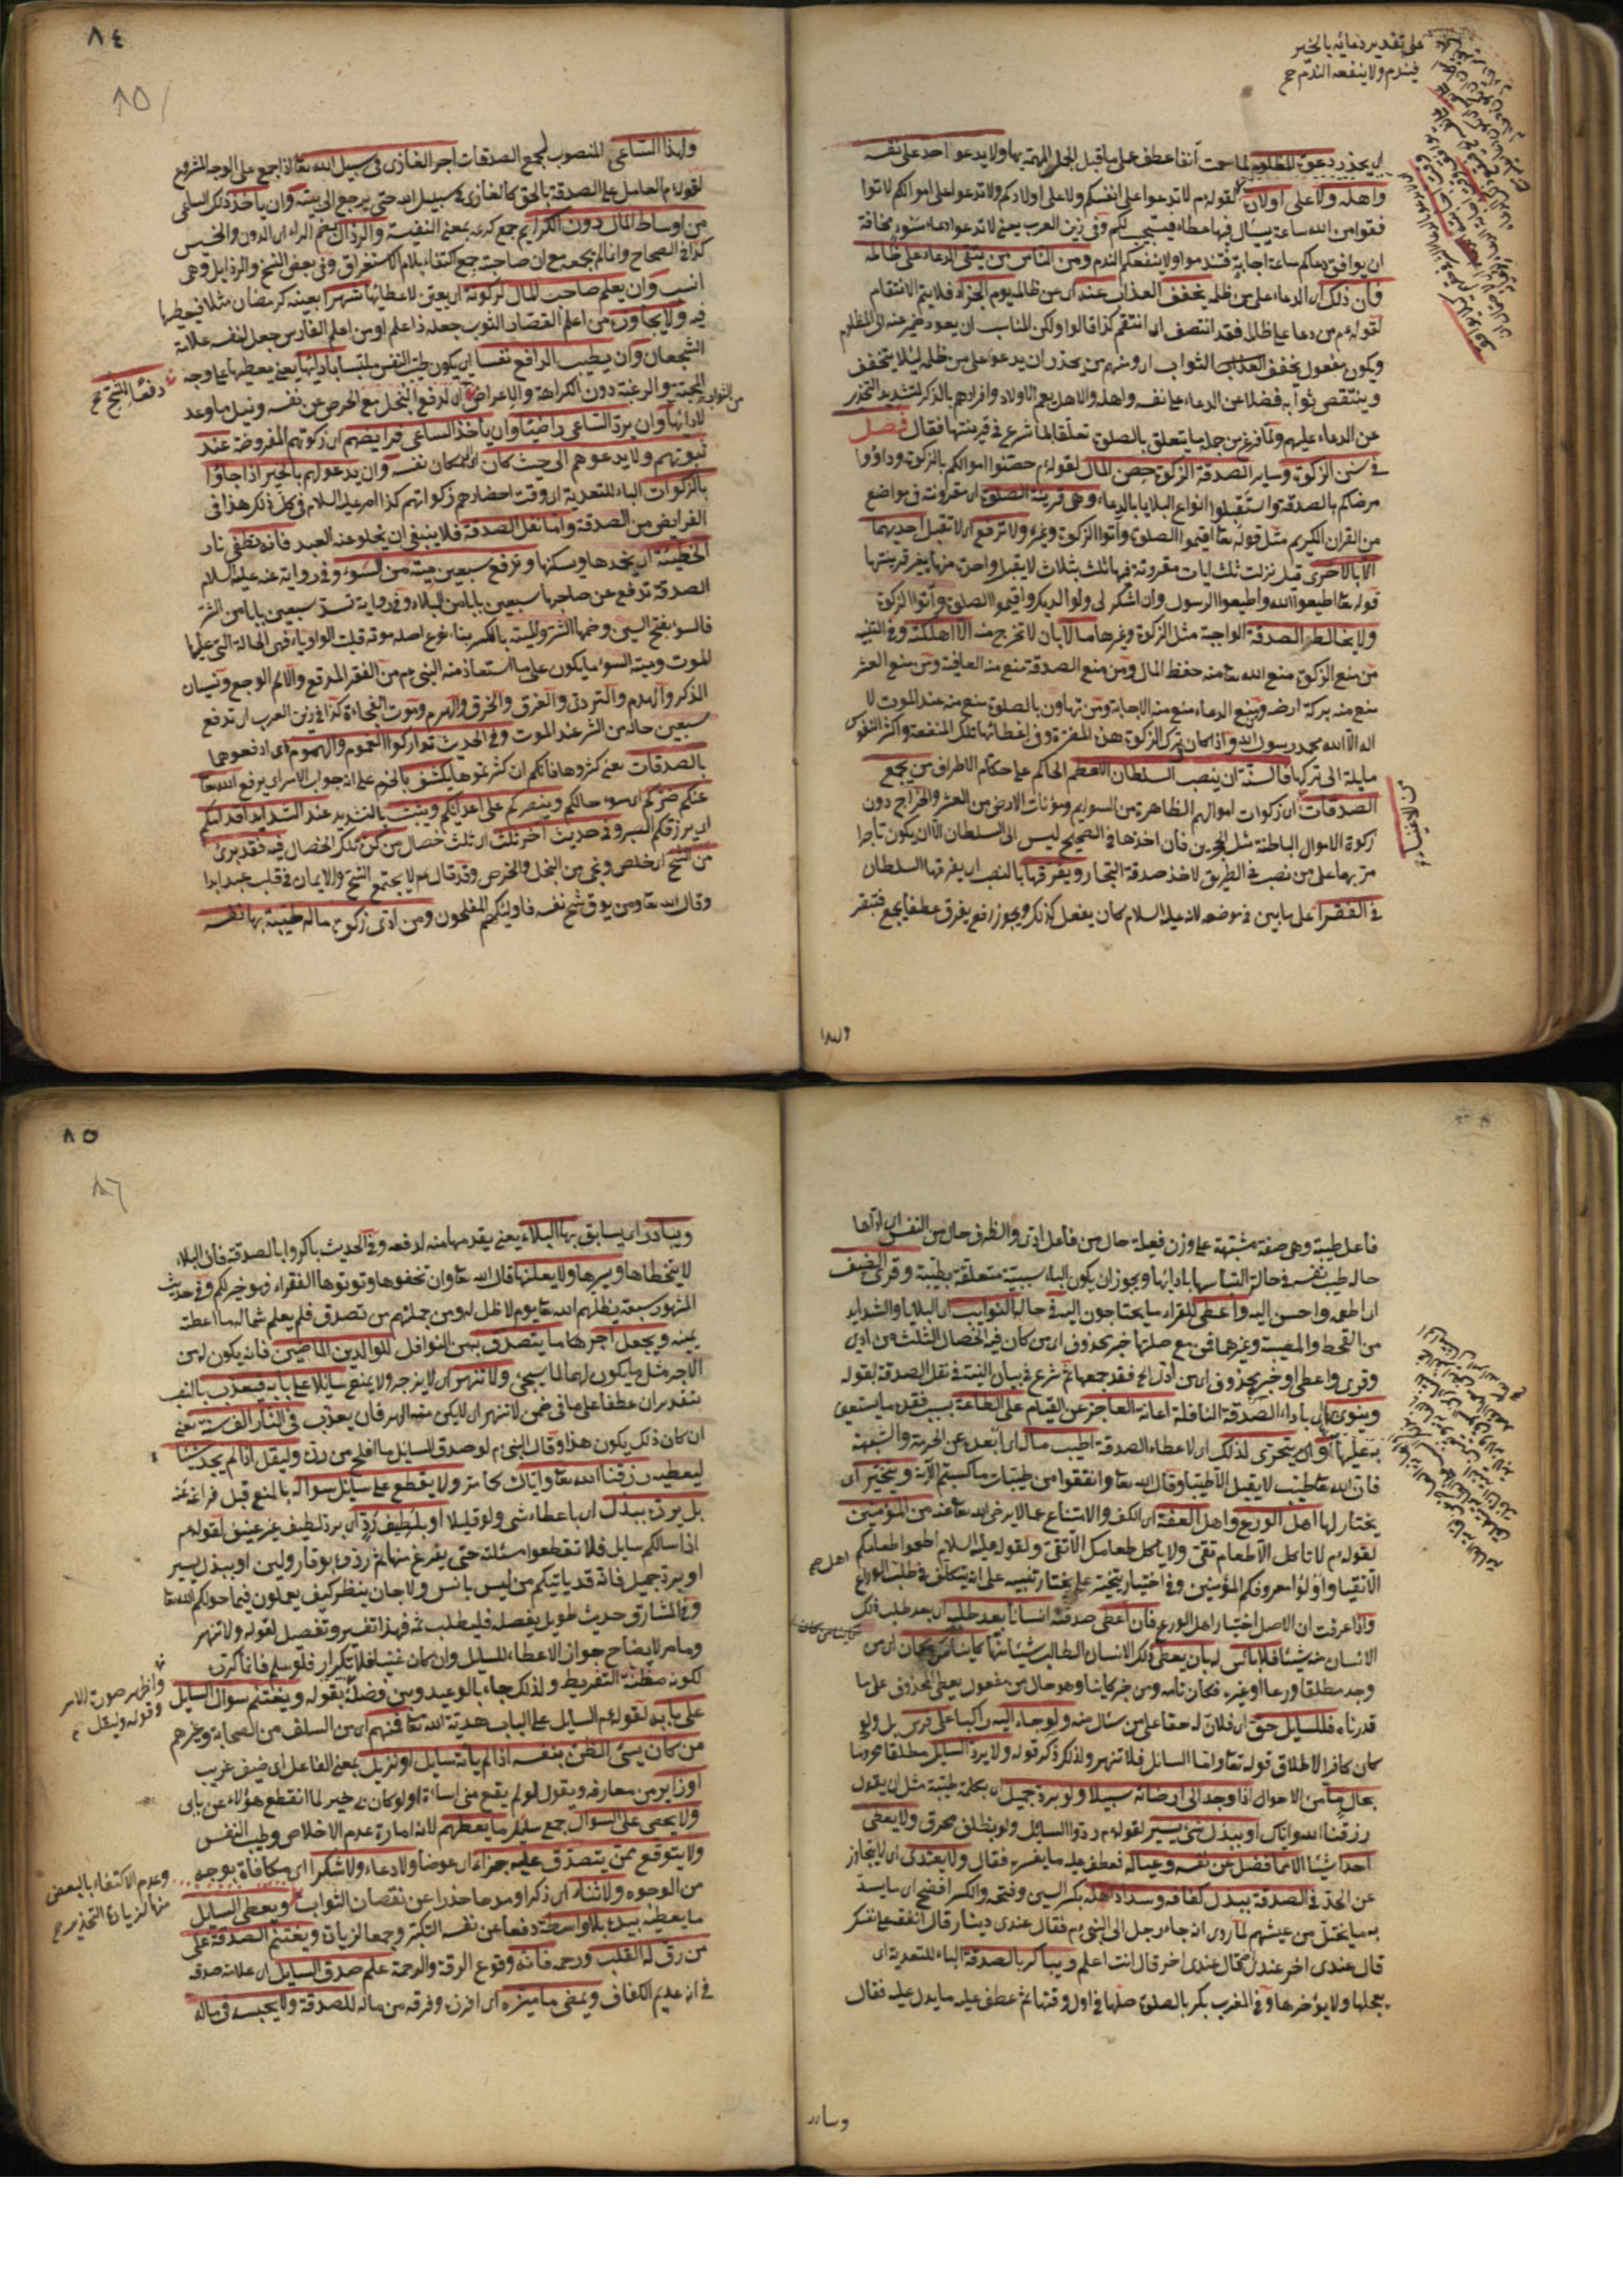 على تقدير دعائه بالخير
فيندم ولا ينفعه الندم صح
اى يحذر دعوة المظلوم لما سمعت آنفا عطف على ما قبل الجمل المهمة بها ولا يدعو احد على نفسه
واهله ولا على اولاده لقوله عم لا تدعوا على انفسكم ولا على اولادكم ولا تدعوا على اموالكم لا توا
فقوا من الله ساعة يسأل فيها عطاء فيستجيب لكم وفى زين العرب يعنى لا تدعوا دعاء سوء مخافة
ان يوافق دعاكم ساعة اجابة فتندموا ولا ينفعكم الندم ومن الناس من يتقى الدعاء على ظالمه
فان ذلك اى الدعاء على من ظلمه يخفف العذاب عنه اى عن ظالمه يوم الجزاء فلا يتم الانتقام
لقوله عم من دعا على ظالمه فقد انتصف اى انتقم كذا قالوا ولكن المناسب ان يعود ضمير عنه الى المظلوم
ويكون مفعول يخفف الثواب اى ومنهم من يحذر ان يدعو على من ظلمه لئلا يتخفف
وينتقص ثوابه فضلا عن الدعاء على نفسه واهله والاهل يعم الاولاد وافرادهم بالذكر لتشديد التحذير
عن الدعاء عليهم ولما فرغ من جملة ما يتعلق بالصلوة تعلقا لما شرع فى قرينتها فقال فصل
فى سنن الزكوة وساير الصدقة الزكوة حصن المال لقوله عم حصنوا اموالكم بالزكوة وداووا
مرضاكم بالصدقة واستقبلوا انواع البلايا بالدعاء وهى قرينة الصلوة اى مقرونة فى مواضع
من القرآن الكريم مثل قوله تعا اقيموا الصلوة وآتوا الزكوة وغيره ولا ترفع اى لا تقبل احديهما
الا بالاخرى قيل نزلت ثلث ايات مقرونة فيها ثلث بثلاث لا يقبل واحدة منها بغير قرينتها
قوله تعا اطيعوا الله واطيعوا الرسول وان اشكر لى ولوالديك واقيموا الصلوة وآتوا الزكوة
ولا يخالط الصدقة الواجبة مثل الزكوة وغيرها مالا بان لا تخرج منه الا اهلكته وفى التنبيه
من منع الزكوة منع الله تعا منه حفظ المال ومن منع الصدقة منع منه العافية ومن منع العشر
منع منه بركة ارضه ومن منع الدعاء منع منه الاجابة ومن تهاون بالصلوة منع منه عند الموت لا
اله الا الله محمد رسول الله واذا كان ترك الزكوة هذه المضرة وفى اعطائها تلك المنفعة واكثر النفوس
مايلة الى تركها فالسنة ان ينصب السلطان الاعظم الحاكم على حكام الاطراف من يجمع
الصدقات اى زكوات اموالهم الظاهرة من السوايم ومؤنات الارض من العشر والخراج دون
من الاغنياء صح
زكوة الاموال الباطنة مثل الحجرين فان اخذها فى الصحيح ليس الى السلطان الا ان يكون تاجرا
مر بها على من نصب فى الطريق لاخذ صدقة التجار ويفرقها بالنصب اى يفرقها السلطان
فى الفقراء على ما بين فى موضعه لانه عليه السلام كان يفعل كذلك ويجوز رفع يفرق عطفا يجمع فتبقر
ولهذا
٨٤
٨٥
ولهذا الساعى المنصوب لجمع الصدقات اجر الغازى فى سبيل الله تعا اذا جمع على الوجه المشروع
لقوله عم العامل على الصدقة بالحق كالغازى فى سبيل الله حتى يرجع الى بيته وان يأخذ ذلك الساعى
من اوساط المال دون الكرايم جمع كريمة بمعنى النفيسة والرذال بضم الراء اى الدون والخسيس
كذا فى الصحاح وانما لم يجمعه مع ان صاحبته جمع اكتفاء بلام الاستغراق وفى بعض النسخ والرذايل وهى
انسب وان يعلم صاحب المال لزكوته اى يعين لاعطائها شهرا بعينه كرمضان مثلا فيعطيها
فيه ولا يجاوزه من اعلم القصار الثوب جعله ذا علم او من اعلم الفارس جعل لنفسه علامة
الشجعان وان يطيب الدافع نفسا اى يكون طيب النفس ملتبسا بادائها يعنى يعطيها على وجه
دفعا للشح صح
المحبة والرغبة دون الكراهة والاعراض اى لدفع البخل مع الحرص عن نفسه ونيل ما وعد
من الثواب
لادائها وان يرد الساعى راضيا وان يأخذ الساعى فرايضهم اى زكوتهم المفروضة عند
بيوتهم ولا يدعوهم الى حيث كان اى الى مكان نفسه وان يدعو لهم بالخير اذا جاؤا
بالزكوات الباء للتعدية اى وقت احضارهم زكواتهم كذا امر عليه السلام فى كل ذلك هذا فى
الفرائض من الصدقة واما نفل الصدقة فلا ينبغى ان يخلو عنه العبد فانه تطفئ نار
الخطيئة اى يخمدها ويسكنها وترفع سبعين ميتة من السوء وفى رواية عنه عليه السلام
الصدقة تدفع عن صاحبها سبعين بابا من البلاء وفى رواية تسد سبعين بابا من الشر
فالسوء بفتح السين وضمها الشر والميتة بالكسر بناء نوع اصله موتة قلبت الواو ياء فهى الحالة التى عليها
الموت وميتة السوء ما يكون على ما استعاذ منه النبى عم من الفقر المدقع والالم الوجع ونسيان
الذكر والهدم والتردى والغرق والحرق والهرم وموت الفجاءة كذا فى زين العرب اى تدفع
سبعين حالة من الشر عند الموت وفى الحديث تداركوا الغموم والهموم اى ادفعوهما
بالصدقات يعنى كثروها فانكم ان كثرتموها يكشف بالجزم على انه جواب الامر اى يرفع الله تعا
عنكم ضركم اى سوء حالكم وينصركم على اعدائكم ويثبت بالتشديد عند الشدايد اقدامكم
اى يرزقكم الصبر وفى حديث آخر ثلث اى ثلث خصال من كن تلك الخصال فيه فقد برئ
من الشح اى خلص ونجى من البخل والحرص وقد قال عم لا يجتمع الشح والايمان فى قلب عبد ابدا
وقال الله تعا ومن يوق شح نفسه فاولئك هم المفلحون ومن ادى زكوة ماله طيبة بها نفسه
فاعل طيبة وهى صفة مشبهة على وزن فيعلة حال من فاعل ادى والظرف حال من النفس اى اداها
حال طيب نفسه فى حالة التباسها بادائها ويجوز ان يكون الباء سببية متعلقة بطيبة وقرى الضيف
اى اطعمه واحسن اليه واعطى للفقراء ما يحتاجون اليه فى حالة النوايب اى البلايا والشدايد
من القحط والمصيبة وغيرهما فمن مع صلتها خبر محذوف اى من كان فيه الخصال الثلث من ادى
وقرى واعطى او خبره محذوف اى من ادى الخ فقد جمعها ثم شرع فى بيان النية فى نفل الصدقة بقوله
وينوى بكل باداء الصدقة النافلة اعانة العاجز عن القيام على الطاعة بسبب فقد ما يستعين
به عليها وان يتحرى لذلك اى لاعطاء الصدقة اطيب ماله اى ابعده عن الحرمة والشبهة
فان الله تعا طيب لا يقبل الا طيبا وقال الله تعا وانفقوا من طيبات ما كسبتم الآية ويتخير اى
يختار لها اهل الورع واهل العفة اى الكف والامتناع عما لا يرضى الله تعا عنه من المؤمنين
لقوله عم لا تأكل الا طعام تقى ولا يأكل طعامك الا تقى ولقوله عليه السلام اطعموا طعامكم
الاتقياء واولوا معروفكم المؤمنين وفى اختيار يتخير على يختار تنبيه على انه يتكلف فى طلب الورع
اهل صح
واذا عرفت ان الاصل اختيار اهل الورع فان اعطى صدقته انسانا بعد طلبه اى بعد طلب ذلك
الانسان منه شيئا فلا بأس له بان يعطى ذلك الانسان الطالب شيئا منها كائنا من كان اى من
وجد مطلقا ورعا او غيره فكان تامة ومن خبر كائنا وهو حال من مفعول يعطى المحذوف على ما
قدرناه فللسايل حق اى فلان له حقا على من سئل منه ولو جاء اليه راكبا على فرس بل ولو
كان كافرا لاطلاق قوله تعا واما السائل فلا تنهر ولذلك ذكر قوله ولا يرد السايل مطلقا محروما
بحال ما من الاحوال اذا وجد الى ارضائه سبيلا ولو برد جميل اى بكلمة طيبة مثل ان يقول
رزقنا الله واياك او ببذل شئ يسير لقوله عم ردوا السائل ولو بظلف محرق ولا يعطى
احدا شيئا الا ما فضل عن نفسه وعياله فعطف عليه ما يفسره فقال ولا يعتدى اى لا يتجاوز
عن الحد فى الصدقة ببذل كفافه وسداد اهله بكسر السين وفتحه والكسر افصح اى ما يسد
به ما يختل من عيشهم لما روى انه جاء رجل الى النبى عم فقال عندى دينار قال انفقه على نفسك
قال عندى اخر عندى قال عندى اخر قال انت اعلم ويباكر بالصدقة الباء للتعدية اى
يعجلها ولا يؤخرها وفى المغرب بكر بالصلوة صلاها فى اول وقتها ثم عطف عليه ما يدل عليه فقال
ويبادر
٨٥
٨٦
ويبادر اى يسابق بها البلاء يعنى يقدمها منه لدفعه وفى الحديث باكروا بالصدقة فان البلاء
لا يتخطاها ويسرها ولا يعلنها قال الله تعا وان تخفوها وتؤتوها الفقراء فهو خير لكم وفى حديث
المشهور سبعة يظلهم الله تعا يوم لا ظل له ومن جملتهم من تصدق فلم يعلم شماله ما اعطت
يمينه ويجعل اجرها ما يتصدق بهن النوافل للوالدين الماضيين فانه يكون لهن
الاجر مثل ما يكون لهما لما سيجئ ولا تنهر اى لا يزجر ولا يمنع سايلا على بابه فيعذب بالنصب
بتقدير ان عطفا على ما فى ضمن لا تنهر اى لا يكن منه النهر فان يعذب فى النار الف سنة يعنى
ان كان ذلك يكون هذا وقال النبى عم لو صدق السايل ما افلح من رده وليقل اذا لم يجد شيئا
ليعطيه رزقنا الله تعا واياك كما مر ولا يقطع على سائل سؤاله بالمنع قبل فراغه عنه
بل يرده ببذل اى باعطاء شئ ولو قليلا او بلطيف رد اى برد لطيف غير عنيف لقوله عم
اذا سالكم سايل فلا تقطعوا مسئلته حتى يفرغ منها ثم ردوه بوقار ولين او ببذل يسير
او برد جميل فانه قد ياتيكم من ليس بانس ولا جان ينظر كيف يعملون فيما خولكم الله تعا
وفى المشارق حديث طويل يفصله فليطلب ثمه فهذا تفسير وتفصيل لقوله ولا تنهر
وما مر لايضاح جواز الاعطاء للسايل وان كان غنيا فلا تكرار فلو سلم فانما كرره
واظهر صورة الامر
وقوله وليقل صح
لكونه مظنة التفريط ولذلك جاء بالوعيد وبين فضله بقوله ويغتنم سوال السايل
على بابه لقوله عم السايل على الباب هدية الله تعا فمنهم اى من السلف من الصحابة وغيرهم
من كان يسئ الظن بنفسه اذا لم يأته سايل او نزيل بمعنى الفاعل اى ضيف غريب
او زاير من معارفه ويقول لو لم يقع منى اساءة او لو كان فى خير لما انقطع هؤلاء عن بابى
ولا يحصى على السؤال جمع سايل ما يعطيهم لانه امارة عدم الاخلاص وطيب النفس
ولا يتوقع ممن يتصدق عليه جزاء اى عوضا ولا دعاء ولا شكرا اى مكافاة بوجه
وعدم الاكتفاء بالبعض
منها لزيادة التحذير صح
من الوجوه ولا ثناء اى ذكرا ومدحا حذرا عن نقصان الثواب ويعطى السايل
ما يعطيه بيده بلا واسطة دفعا عن نفسه التكبر وجمعا لزيادة ويغتنم الصدقة على
من رق له القلب ورحمه فانه وقوع الرقة والرحمة علم صدق السايل اى علامة صدقه
فى انه عديم الكفاف ويمضى ما ميزه اى افرزه وفرقه من ماله للصدقة ولا يحبسه فى ماله